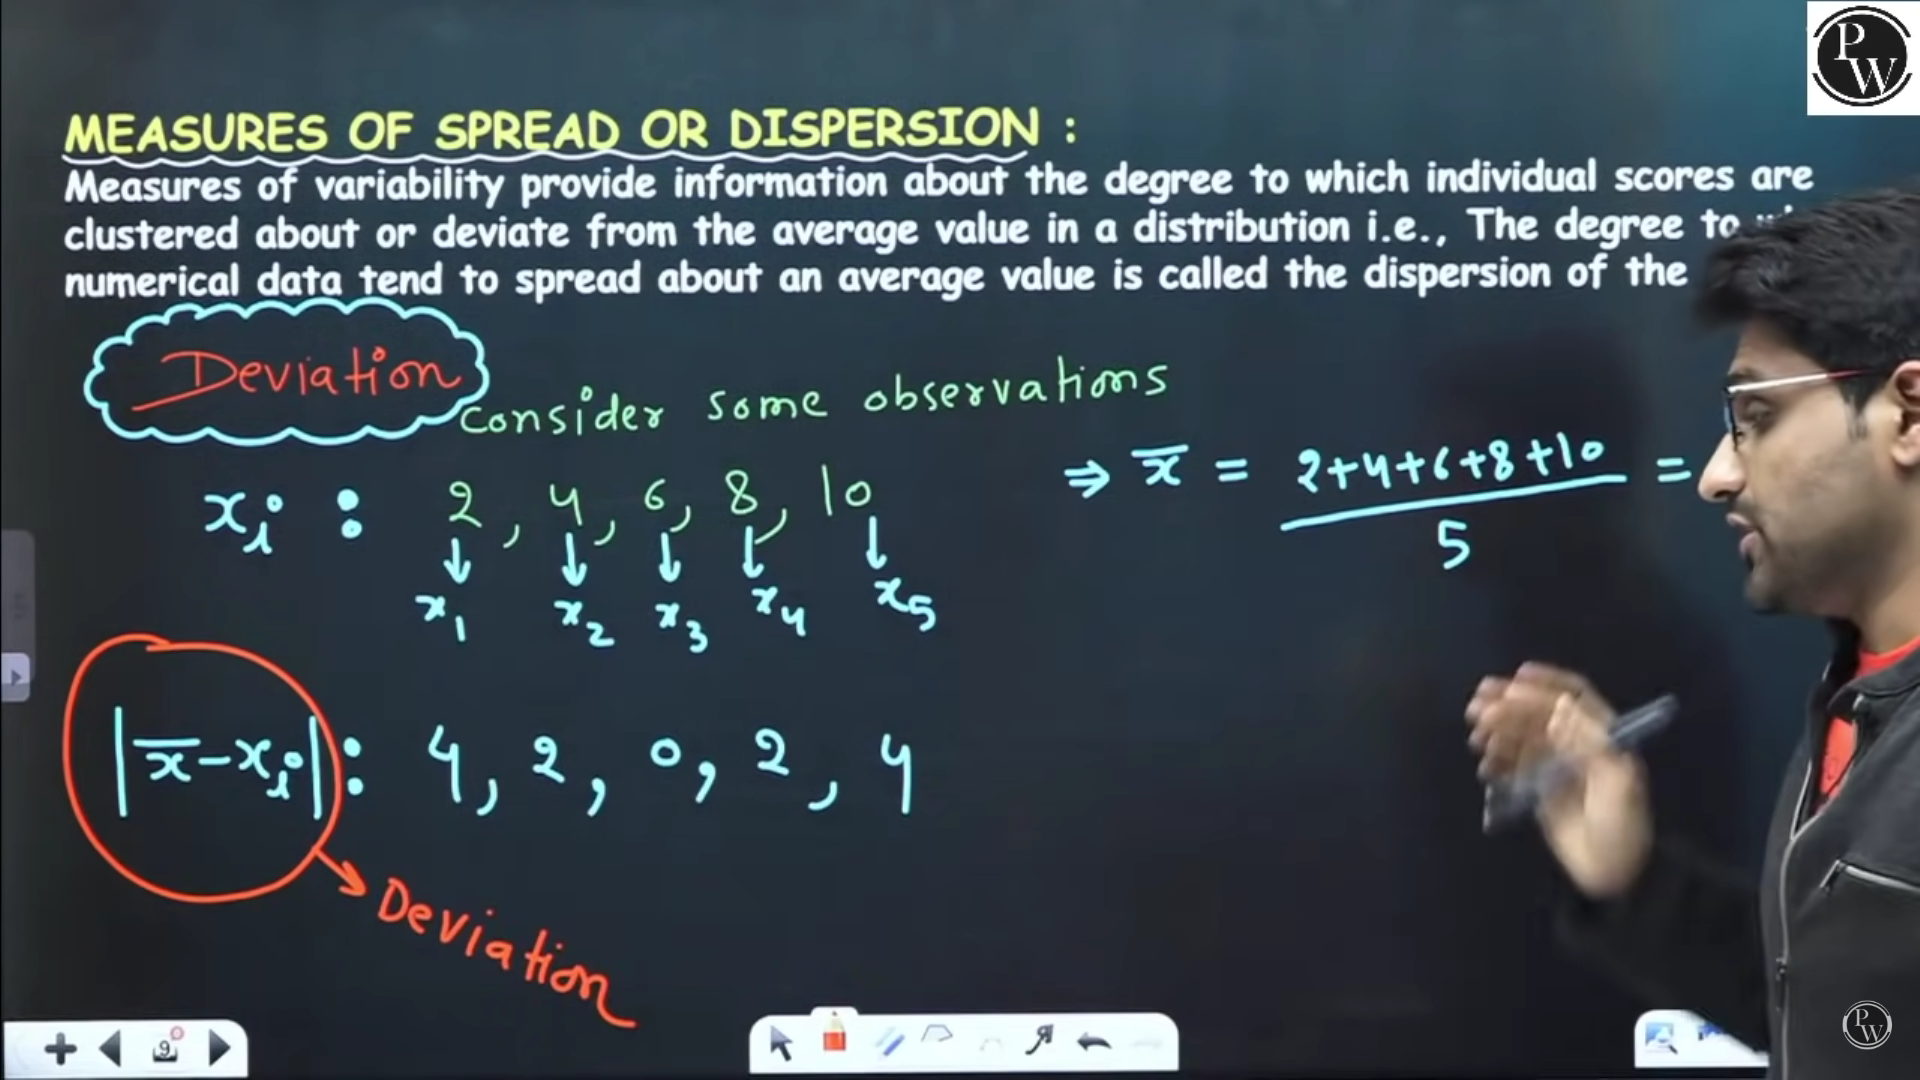 PW
MEASURES OF SPREAD OR DISPERSION :
Measures of variability provide information about the degree to which individual scores are
clustered about or deviate from the average value in a distribution i.e., The degree to
numerical data tend to spread about an average value is called the dispersion of the
Deviation
Consider some observations
xᵢ : 2, 4, 6, 8, 10
x₁ x₂ x₃ x₄ x₅
⇒ x̅ = (2+4+6+8+10)/5 =
|x̅-xᵢ| : 4, 2, 0, 2, 4
Deviation
9
PW